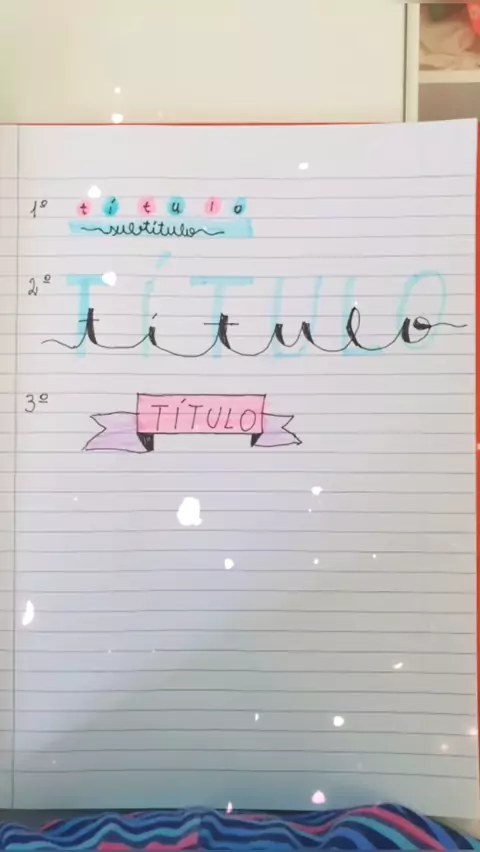 1º título
subtítulo
2º TÍTULO
título
3º TÍTULO